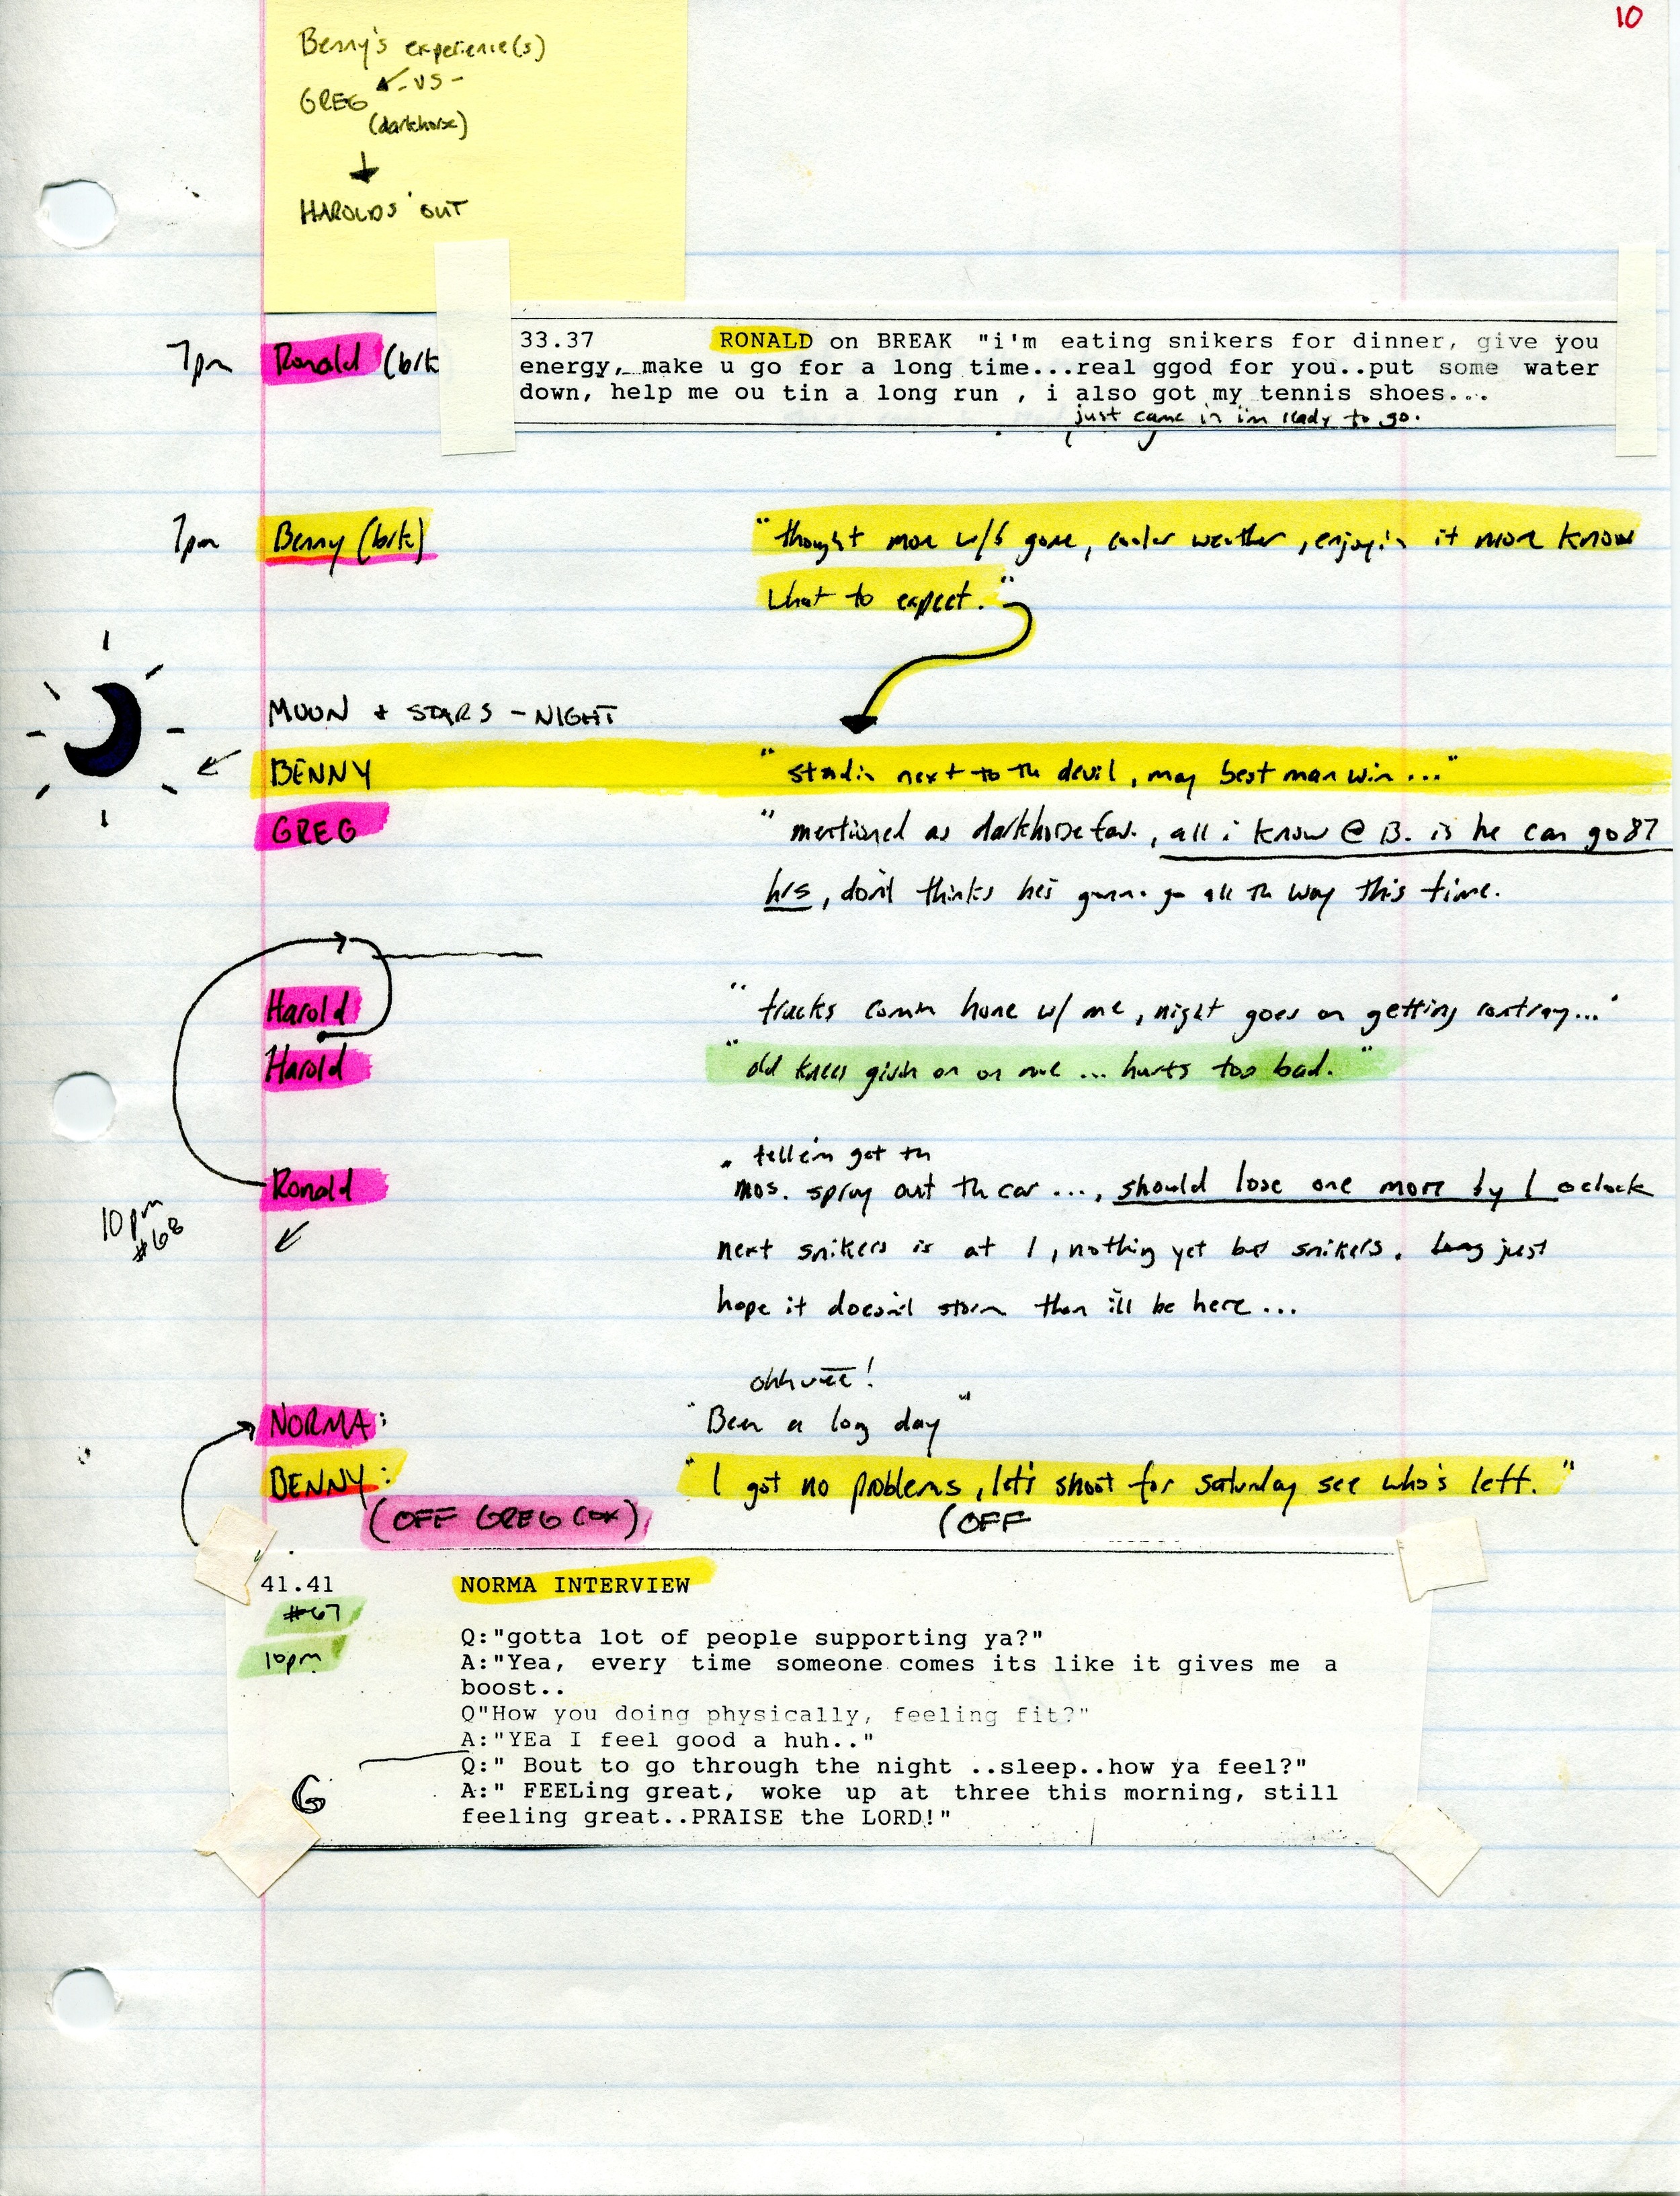 10
Benny's experience(s)
-vs-
GREG
(darkhorse)
HAROLDS OUT
7pm Ronald (brk
33.37 RONALD on BREAK "i'm eating snikers for dinner, give you
energy, make u go for a long time...real ggod for you..put some water
down, help me ou tin a long run , i also got my tennis shoes...
just came in i'm ready to go.
7pm Benny (brk) "thought more w/b gone, cooler weather, enjoyin it more know
what to expect."
MOON + STARS - NIGHT
BENNY "standin next to th devil, may best man win ..."
GREG "mentioned as darkhorse fav., all i know @ B. is he can go 87
hrs, don't thinks he's gunna go all th way this time.
Harold "trucks comin home w/ me, night goes on getting contray..."
Harold "old knees givin on on me ... hurts too bad."
tell'em get th
Ronald mos. spray out th car ..., should lose one more by 1 oclock
10pm
#68
next snikers is at 1, nothing yet but snikers. just
hope it doesn't storm then ill be here ...
ohhweee!
NORMA: "Been a long day"
BENNY: "I got no problems, let's shoot for saturday see who's left."
(OFF GREG COX) (OFF
41.41 NORMA INTERVIEW
#67
Q:"gotta lot of people supporting ya?"
10pm A:"Yea, every time someone comes its like it gives me a
boost..
Q"How you doing physically, feeling fit?"
A:"YEa I feel good a huh.."
Q:" Bout to go through the night ..sleep..how ya feel?"
G A:" FEELing great, woke up at three this morning, still
feeling great..PRAISE the LORD!"